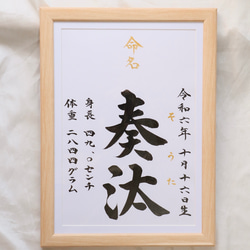 命名
令和六年 十月十六日生
そうた
奏汰
身長 四九.〇センチ
体重 二八四四グラム